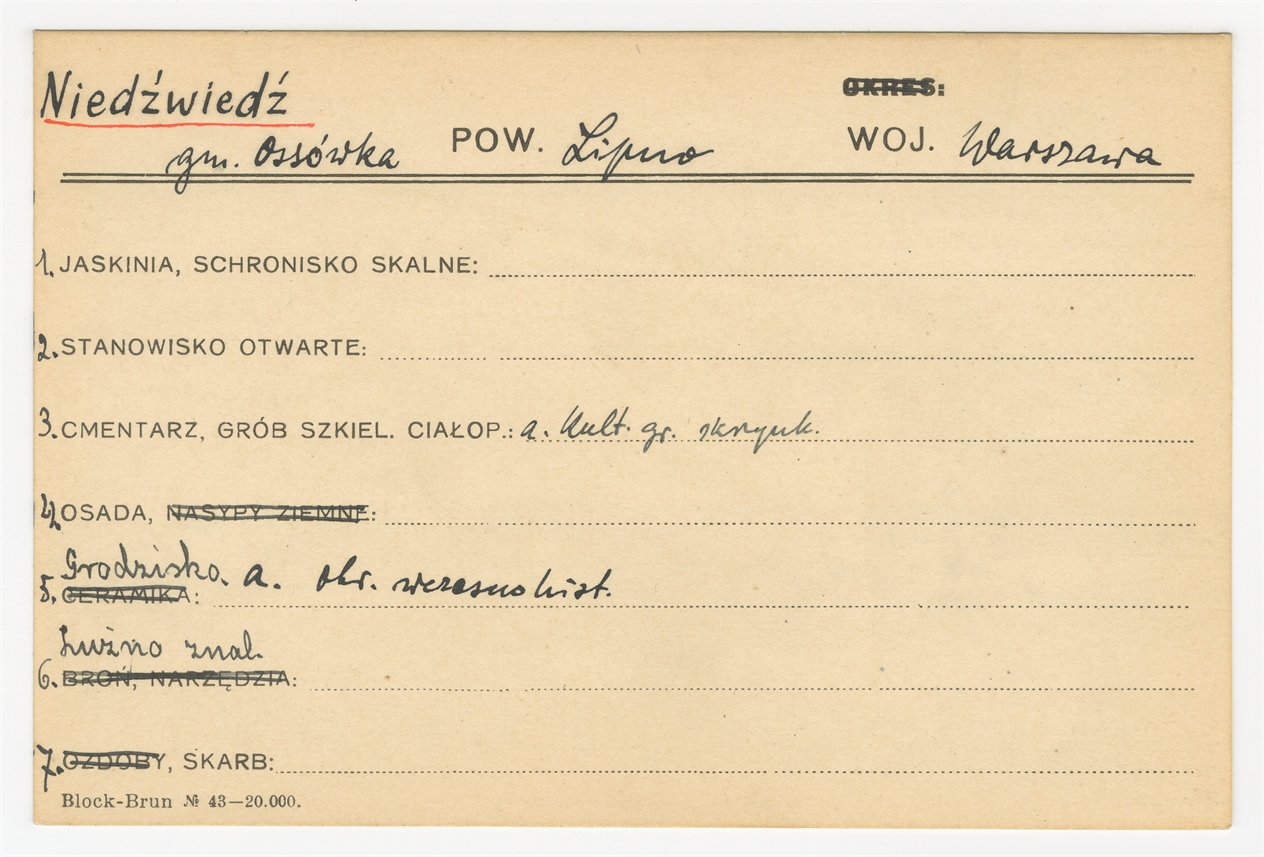 Niedźwiedź
OKRES:
gm. Ossówka POW. Lipno WOJ. Warszawa
1. JASKINIA, SCHRONISKO SKALNE:
2. STANOWISKO OTWARTE:
3. CMENTARZ, GRÓB SZKIEL. CIAŁOP.: a. Kult. gr. skrzynk.
4. OSADA, NASYPY ZIEMNE:
Grodzisko. a. okr. wczesnohist.
5. CERAMIKA:
Luźno znal.
6. BROŃ, NARZĘDZIA:
7. OZDOBY, SKARB:
Block-Brun № 43—20.000.